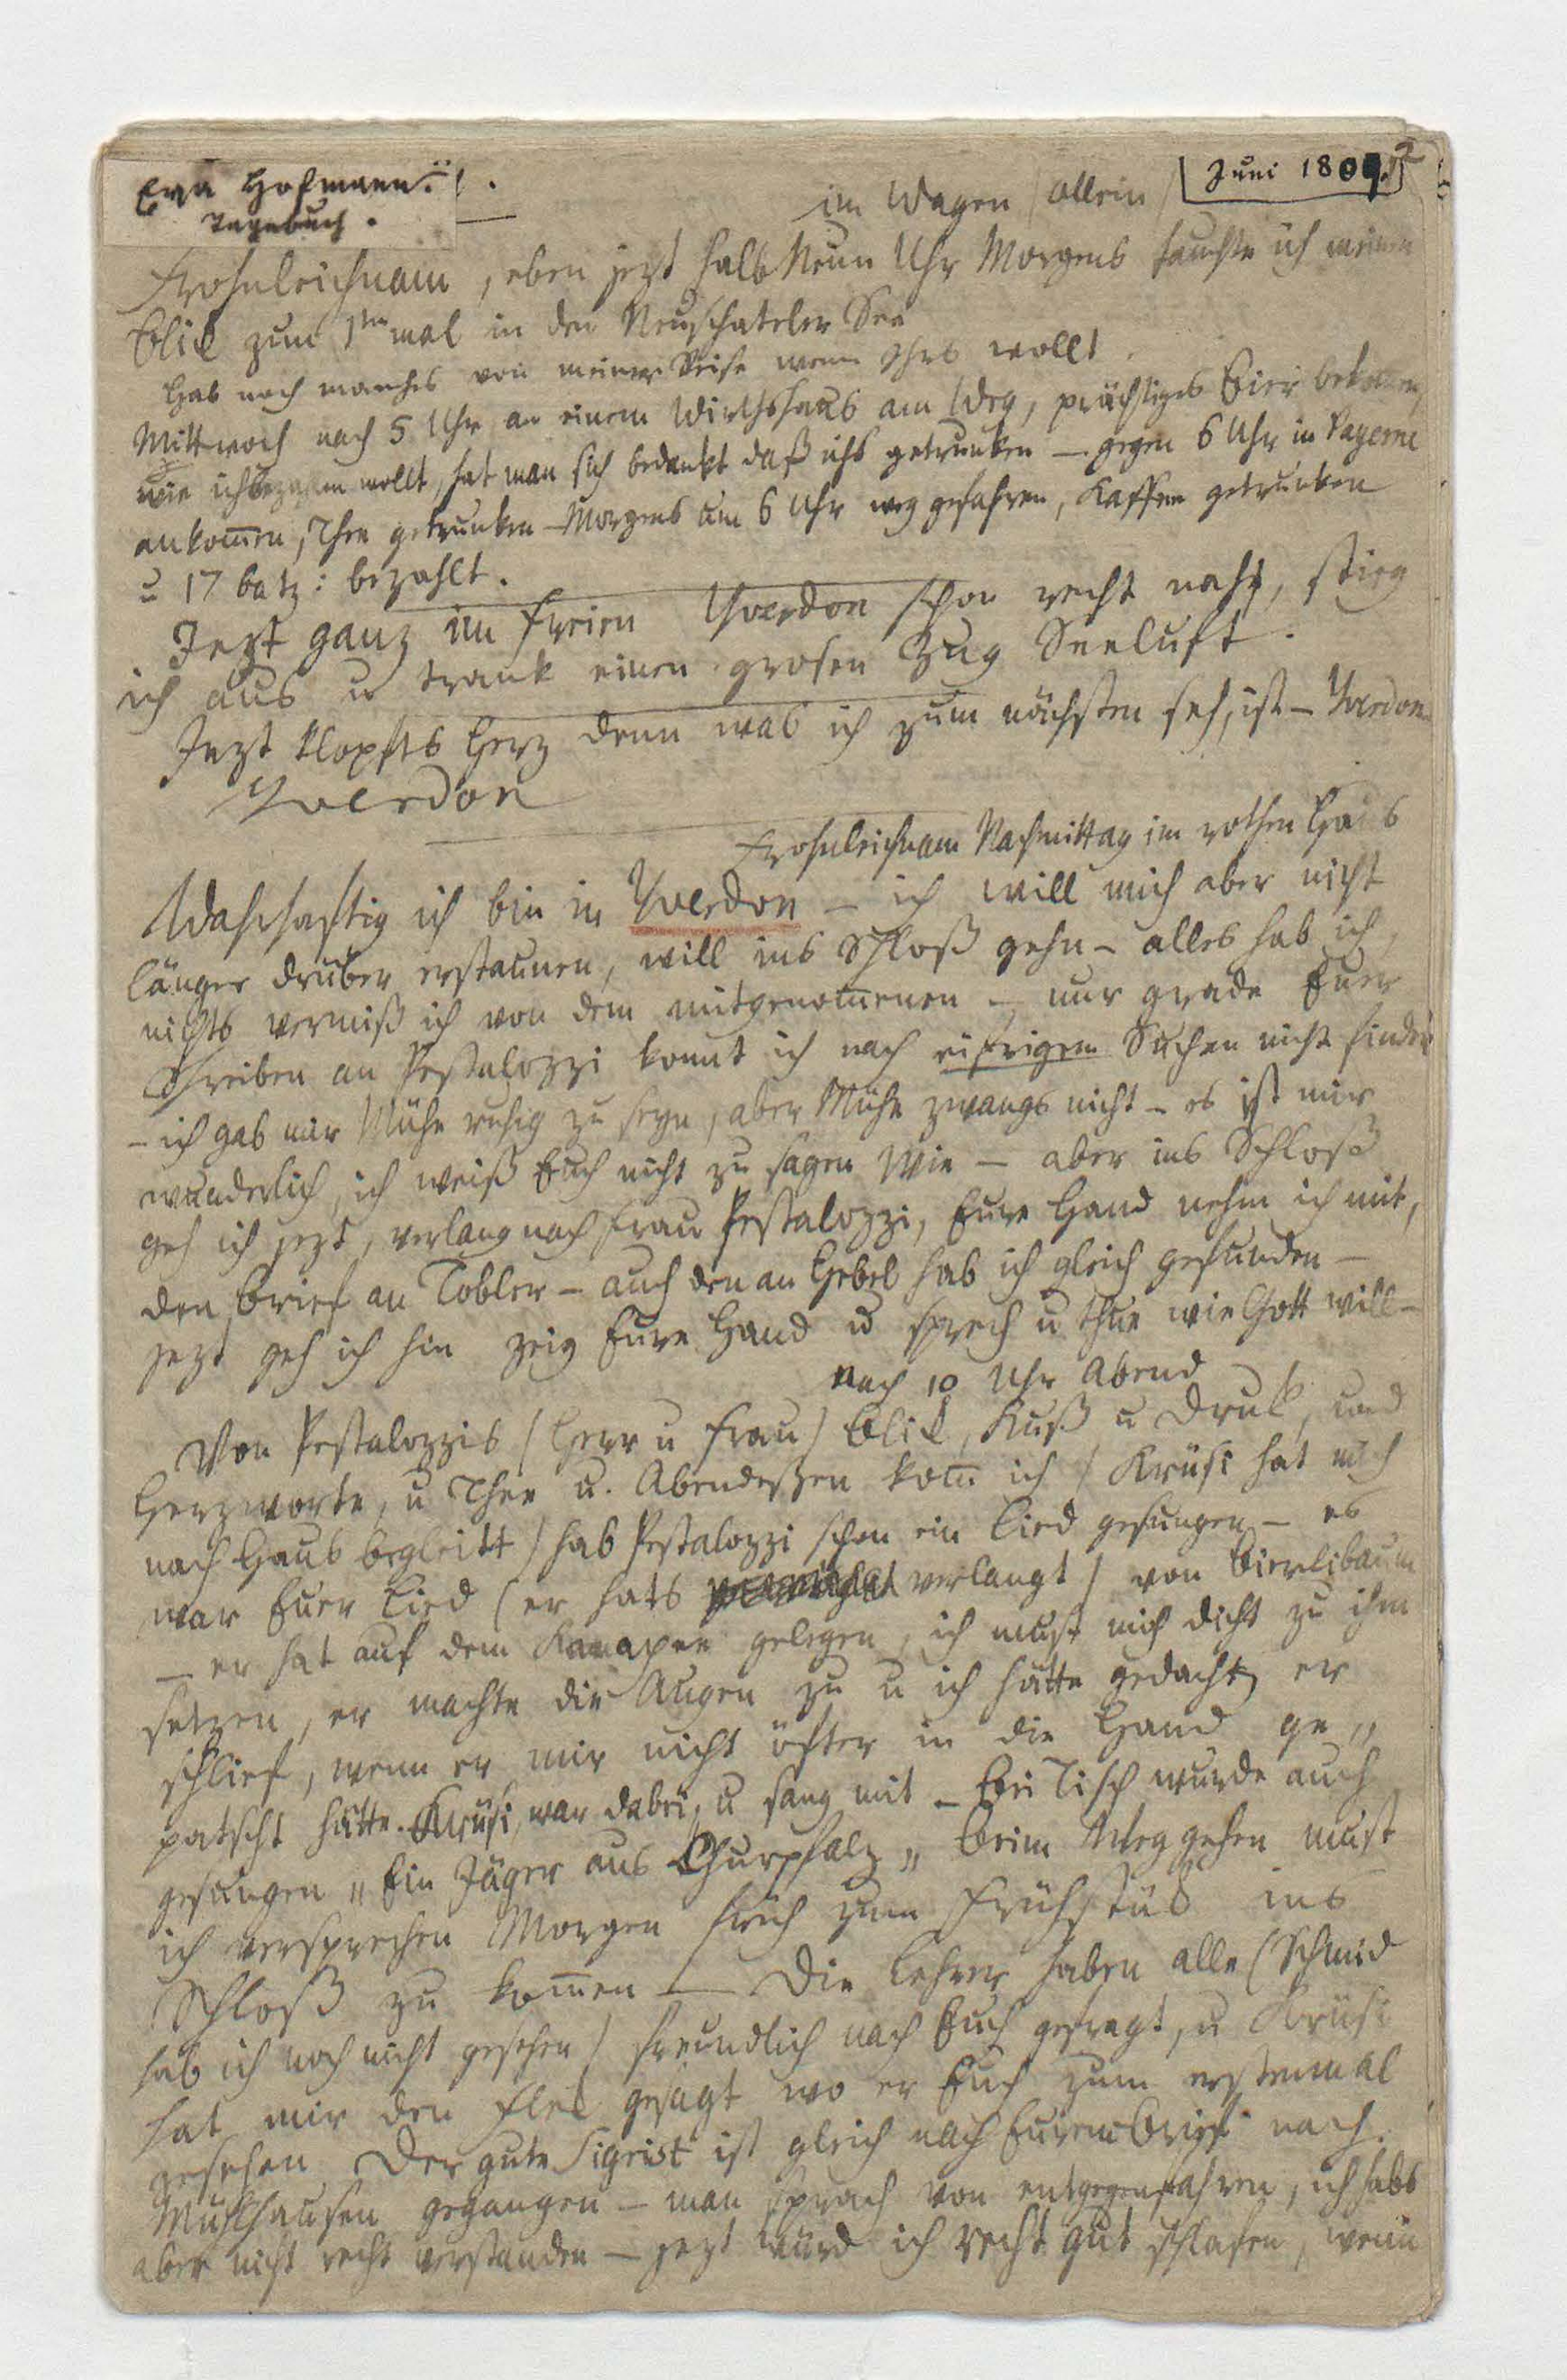 Eva Hofmann. 1.
Tagebuch.
Juni 1809.
im Wagen /allein/
Frohnleichnam, eben jezt halb Neun Uhr Morgens tauchte ich meinen
Blick zum 1ten mal in den Neuschateler See
Hab noch manches von meiner Reise wenn Ihrs wollt.
Mittwoch nach 5 Uhr an einem Wirthshaus am Weg, prächtiges Bier bekommen,
wie ichs bezahlen wollt, hat man sich bedankt daß ichs getrunken — gegen 6 Uhr in Payerne
ankom̄en, Thee getrunken — Morgens um 6 Uhr weg gefahren, Kaffee getrunken
u 17 batz: bezahlt.
Jezt ganz im freien Yverdon schon recht nah, stieg
ich aus u trank einen grosen Zug Seeluft.
Jezt klopfts Herz denn was ich zum nächsten seh, ist — Yverdon
Yverdon
Frohnleichnam Nachmittag im rothen Haus
Wahrhaftig ich bin in Yverdon — ich will mich aber nicht
länger drüber erstaunen, will ins Schloß gehn — alles hab ich,
nichts vermiß ich von dem mitgenom̄enen — nur grade Euer
Schreiben an Pestalozzi konnt ich nach eifrigem Suchen nicht finden
— ich gab mir Mühe ruhig zu seyn, aber Mühe zwangs nicht — es ist mir
wunderlich, ich weiß Euch nicht zu sagen Wie — aber ins Schloß
geh ich jezt, verlang nach Frau Pestalozzi, Eure Hand nehm ich mit,
den Brief an Tobler — auch den an Hebel hab ich gleich gefunden —
jezt geh ich hin zeig Eure Hand u sprech u thue wie Gott will —
nach 10 Uhr Abend
Von Pestalozzis /Herr u Frau/ Blick, Kuß u Druck, und
Herzworte, u Thee u. Abendeßen kom̄ ich /Krüsi hat mich
nach Haus begleitt/ hab Pestalozzi schon ein Lied gesungen — es
war Euer Lied (er hats verlangt) von Bierlibaum
— er hat auf dem Kanapee gelegen, ich must mich dicht zu ihm
setzen, er machte die Augen zu u ich hätte gedacht er
schlief, wenn er mir nicht öfter in die Hand ge„
patscht hätte. Krüsi, war dabei, u sang mit — Bei Tisch wurde auch
gesungen „Ein Jäger aus Churpfalz„ Beim Weggehen must
ich versprechen Morgen früh zum Frühstück ins
Schloß zu kom̄en — Die Lehrer haben alle (Schmid
hab ich noch nicht gesehen) freundlich nach Euch gefragt, u Krüsi
hat mir den Fleck gesagt wo er Euch zum erstenmal
gesehen. Der gute Sigrist ist gleich nach Eurem Brief nach
Mühlhausen gegangen — man sprach von entgegenfahren, ich habs
aber nicht recht verstanden — jezt würd ich recht gut schlafen, wenn